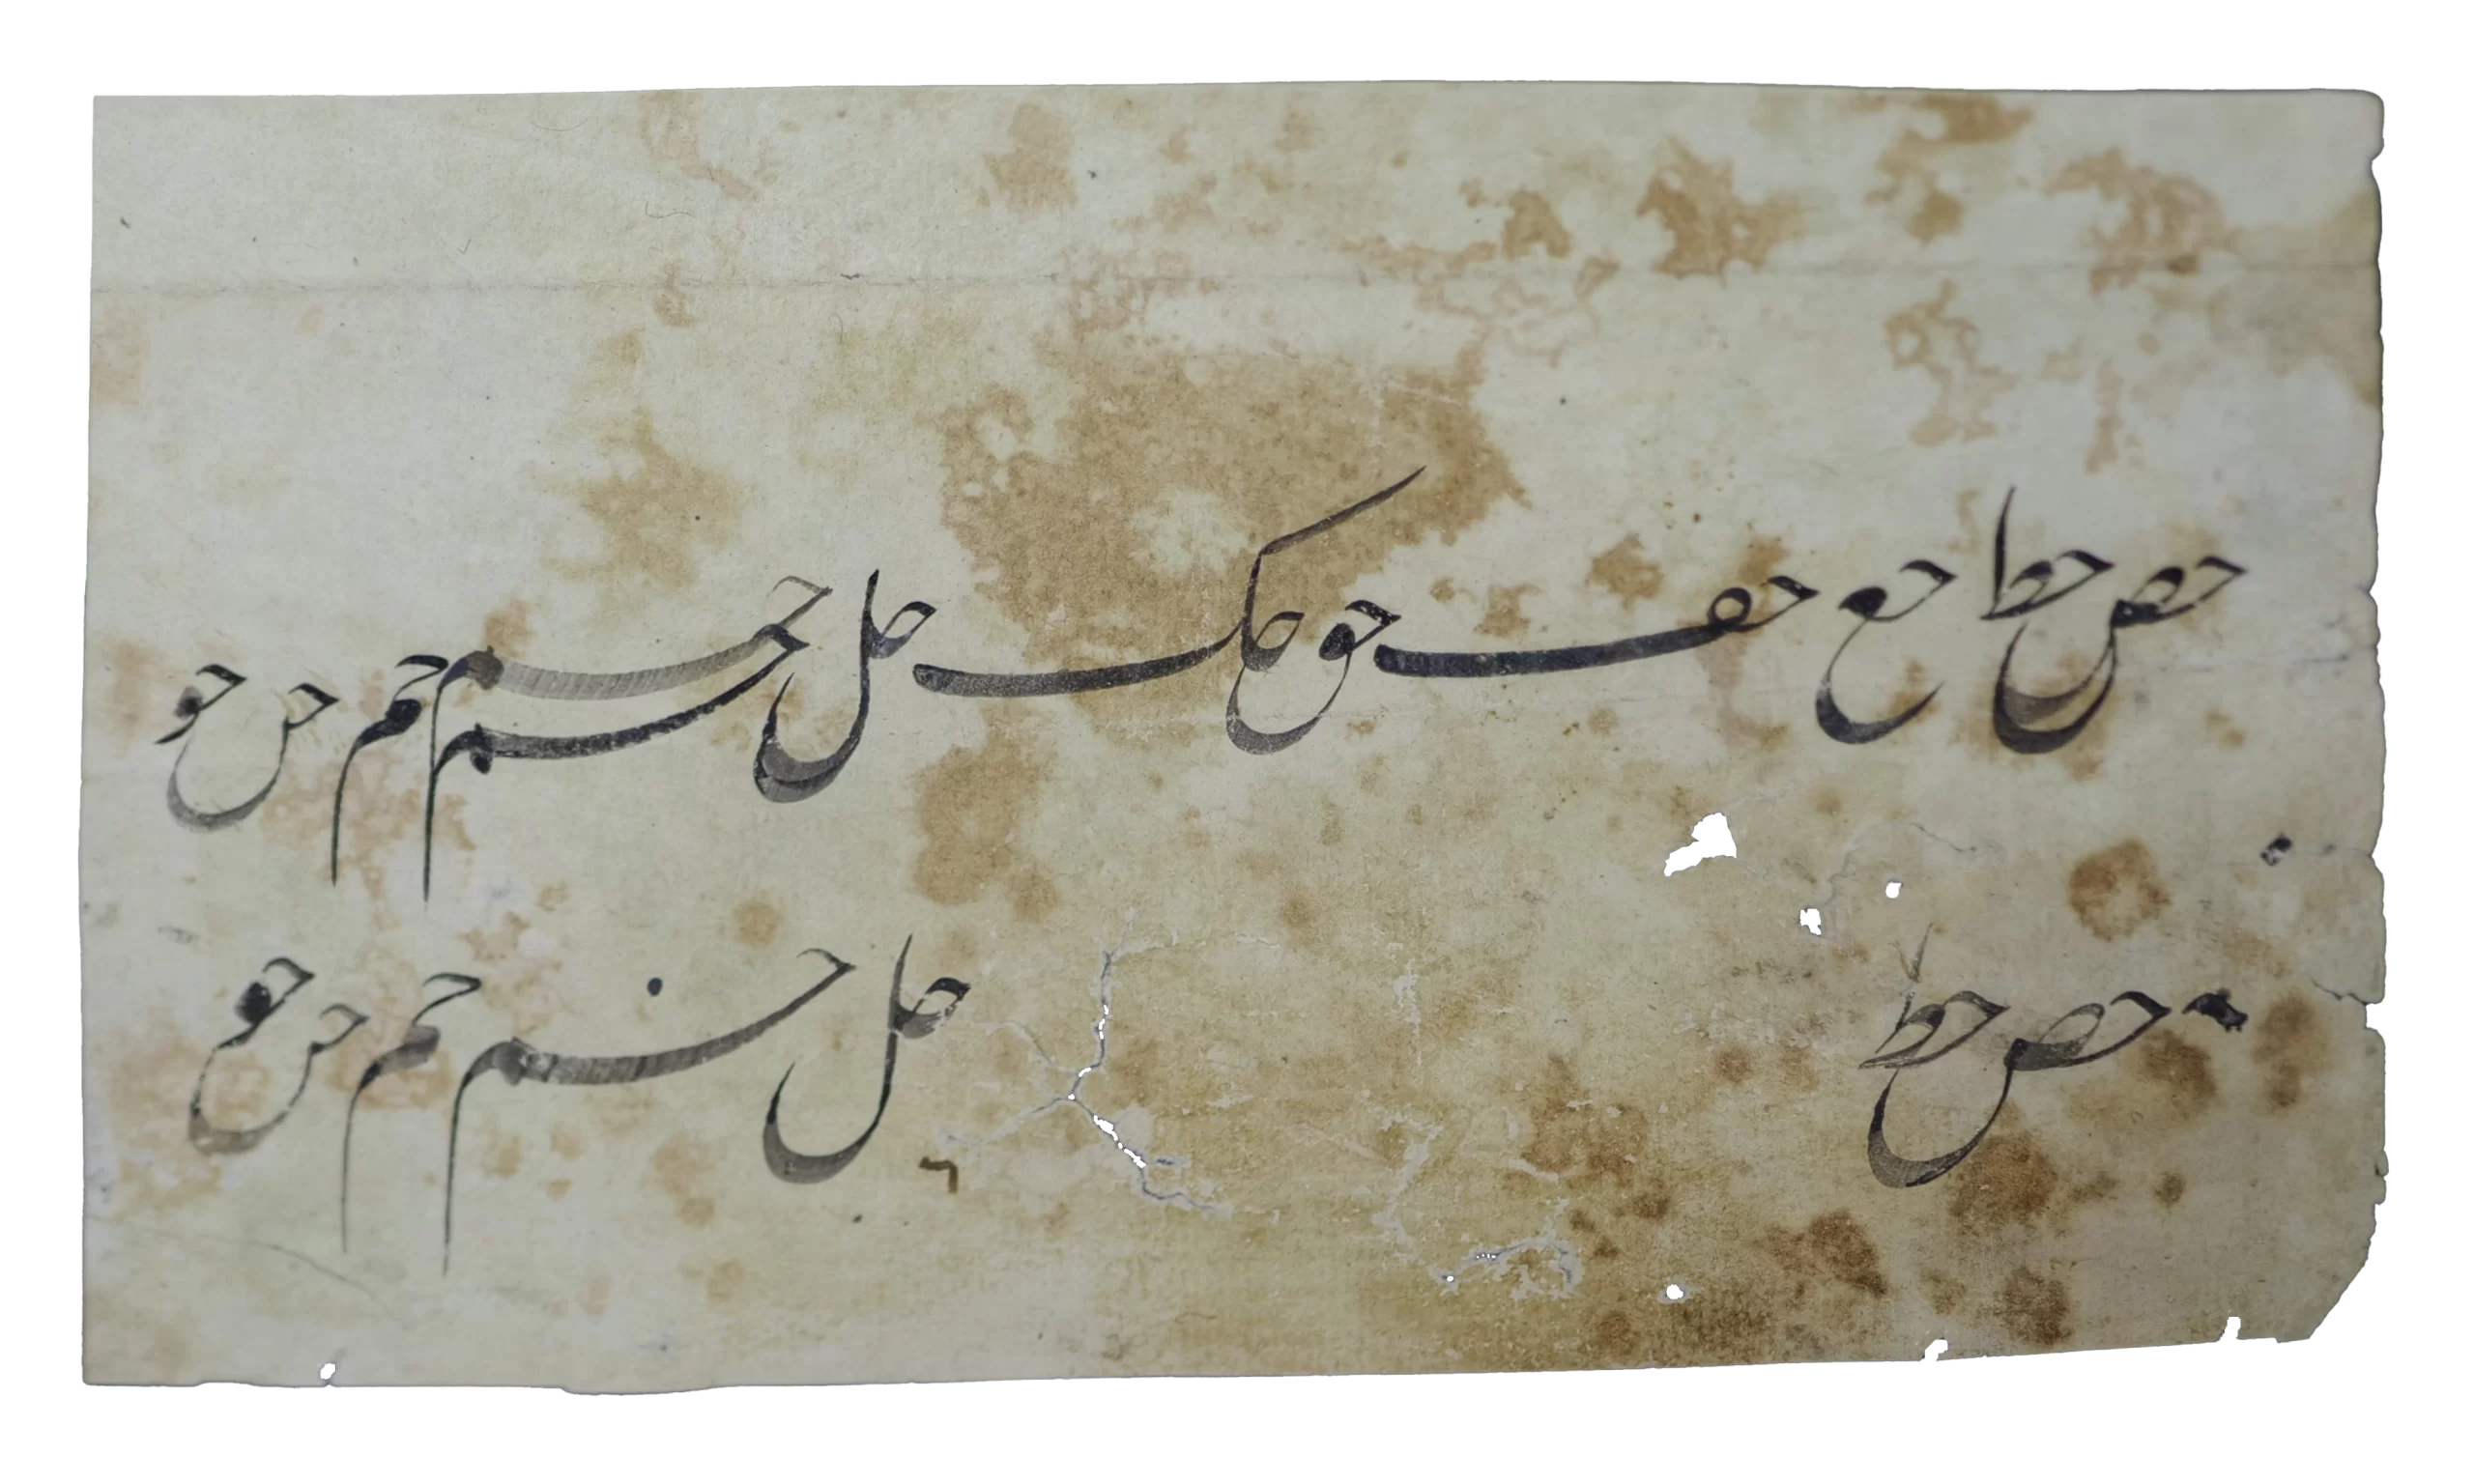 حص حط حع حف حق حک حل حم حم حم حن حو
حص حط حل حم حم حن حو